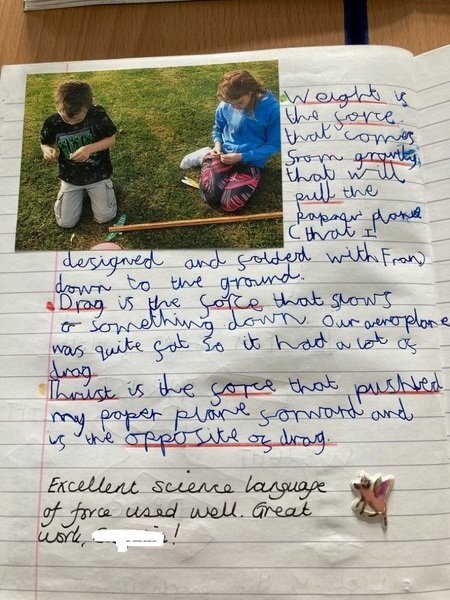 Weight is
the force
that comes
from gravity,
that will
pull the
paper plane
(that I
designed and folded with Fran)
down to the ground.
Drag is the force that slows
something down. Our aeroplane
was quite fat so it had a lot of
drag
Thrust is the force that pushed
my paper plane forward and
is the opposite of drag.
Excellent science language
of force used well. Great
work, !